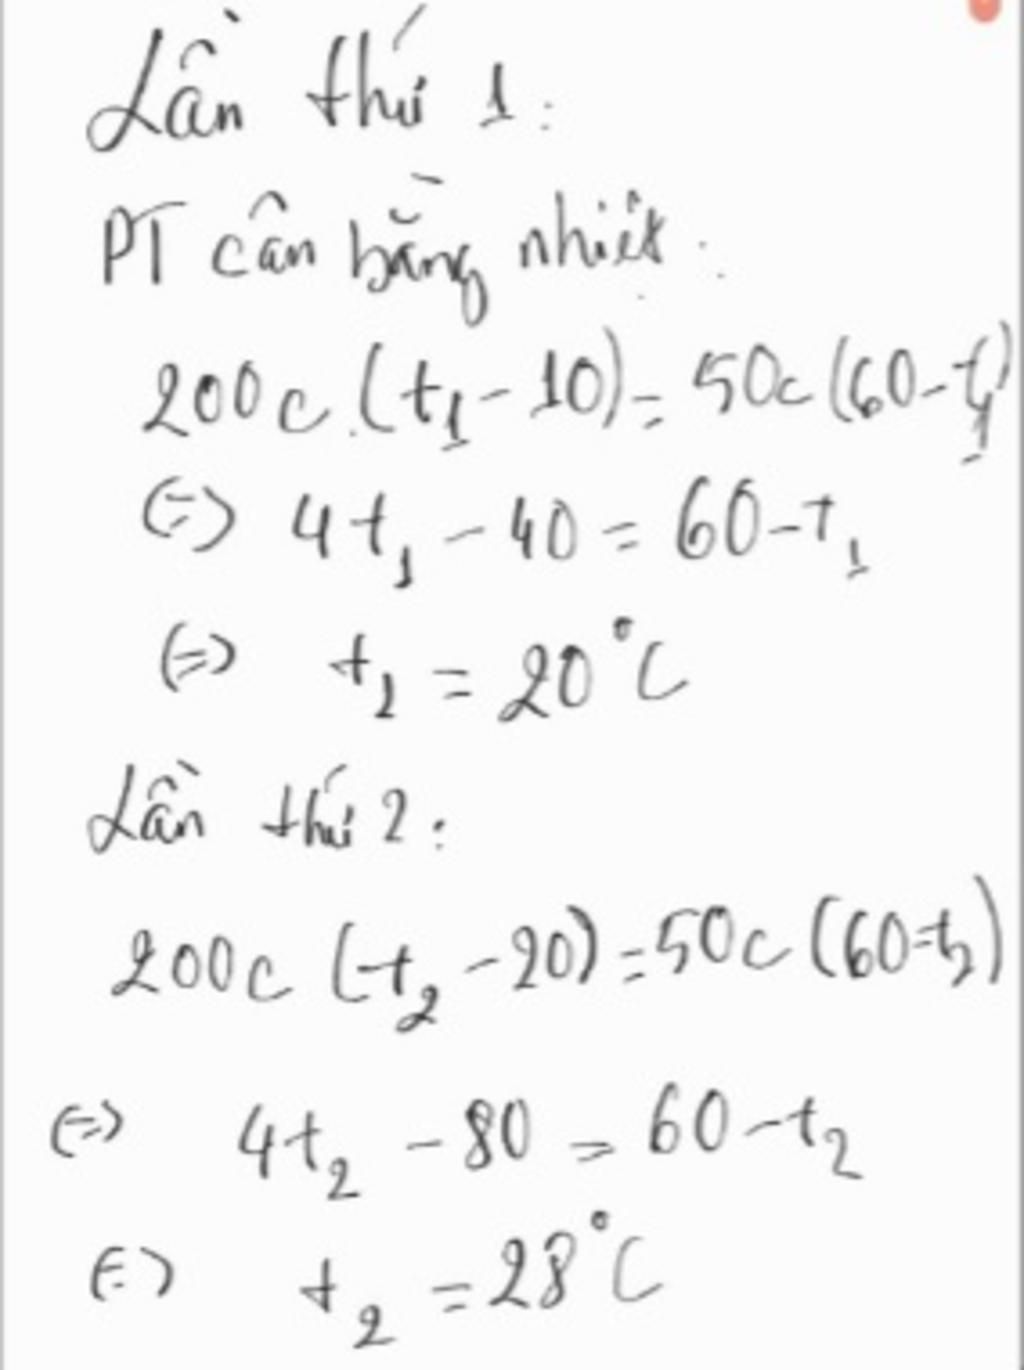 Lần thứ 1:
PT cân bằng nhiệt:
200c.(t₁-10)=50c(60-t₁)
(=) 4t₁-40=60-t₁
(=) t₁=20°C
Lần thứ 2:
200c(t₂-20)=50c(60-t₂)
(=) 4t₂-80=60-t₂
(=) t₂=28°C